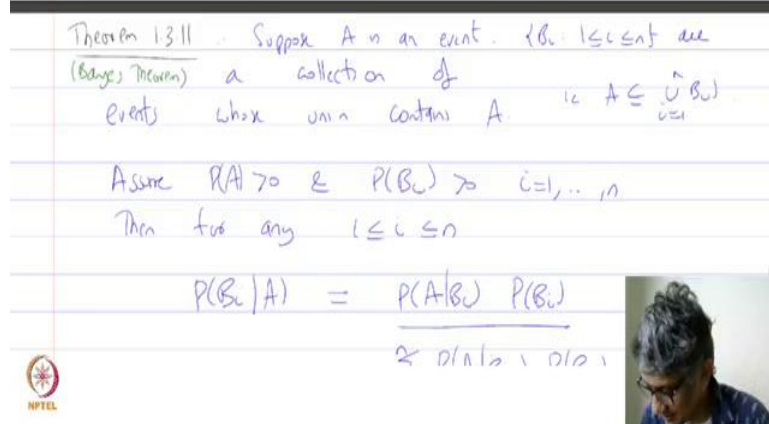 Theorem 1.3.11. Suppose A is an event. {Bᵢ : 1≤i≤n} are
(Bayes Theorem) a collection of
events whose union contains A. ie A ⊆ ⋃ⁿᵢ₌₁ Bᵢ)
Assume P(A) >0 & P(Bᵢ) >0 i=1,..,n
Then for any 1≤i≤n
P(Bᵢ|A) = P(A|Bᵢ) P(Bᵢ)
NPTEL